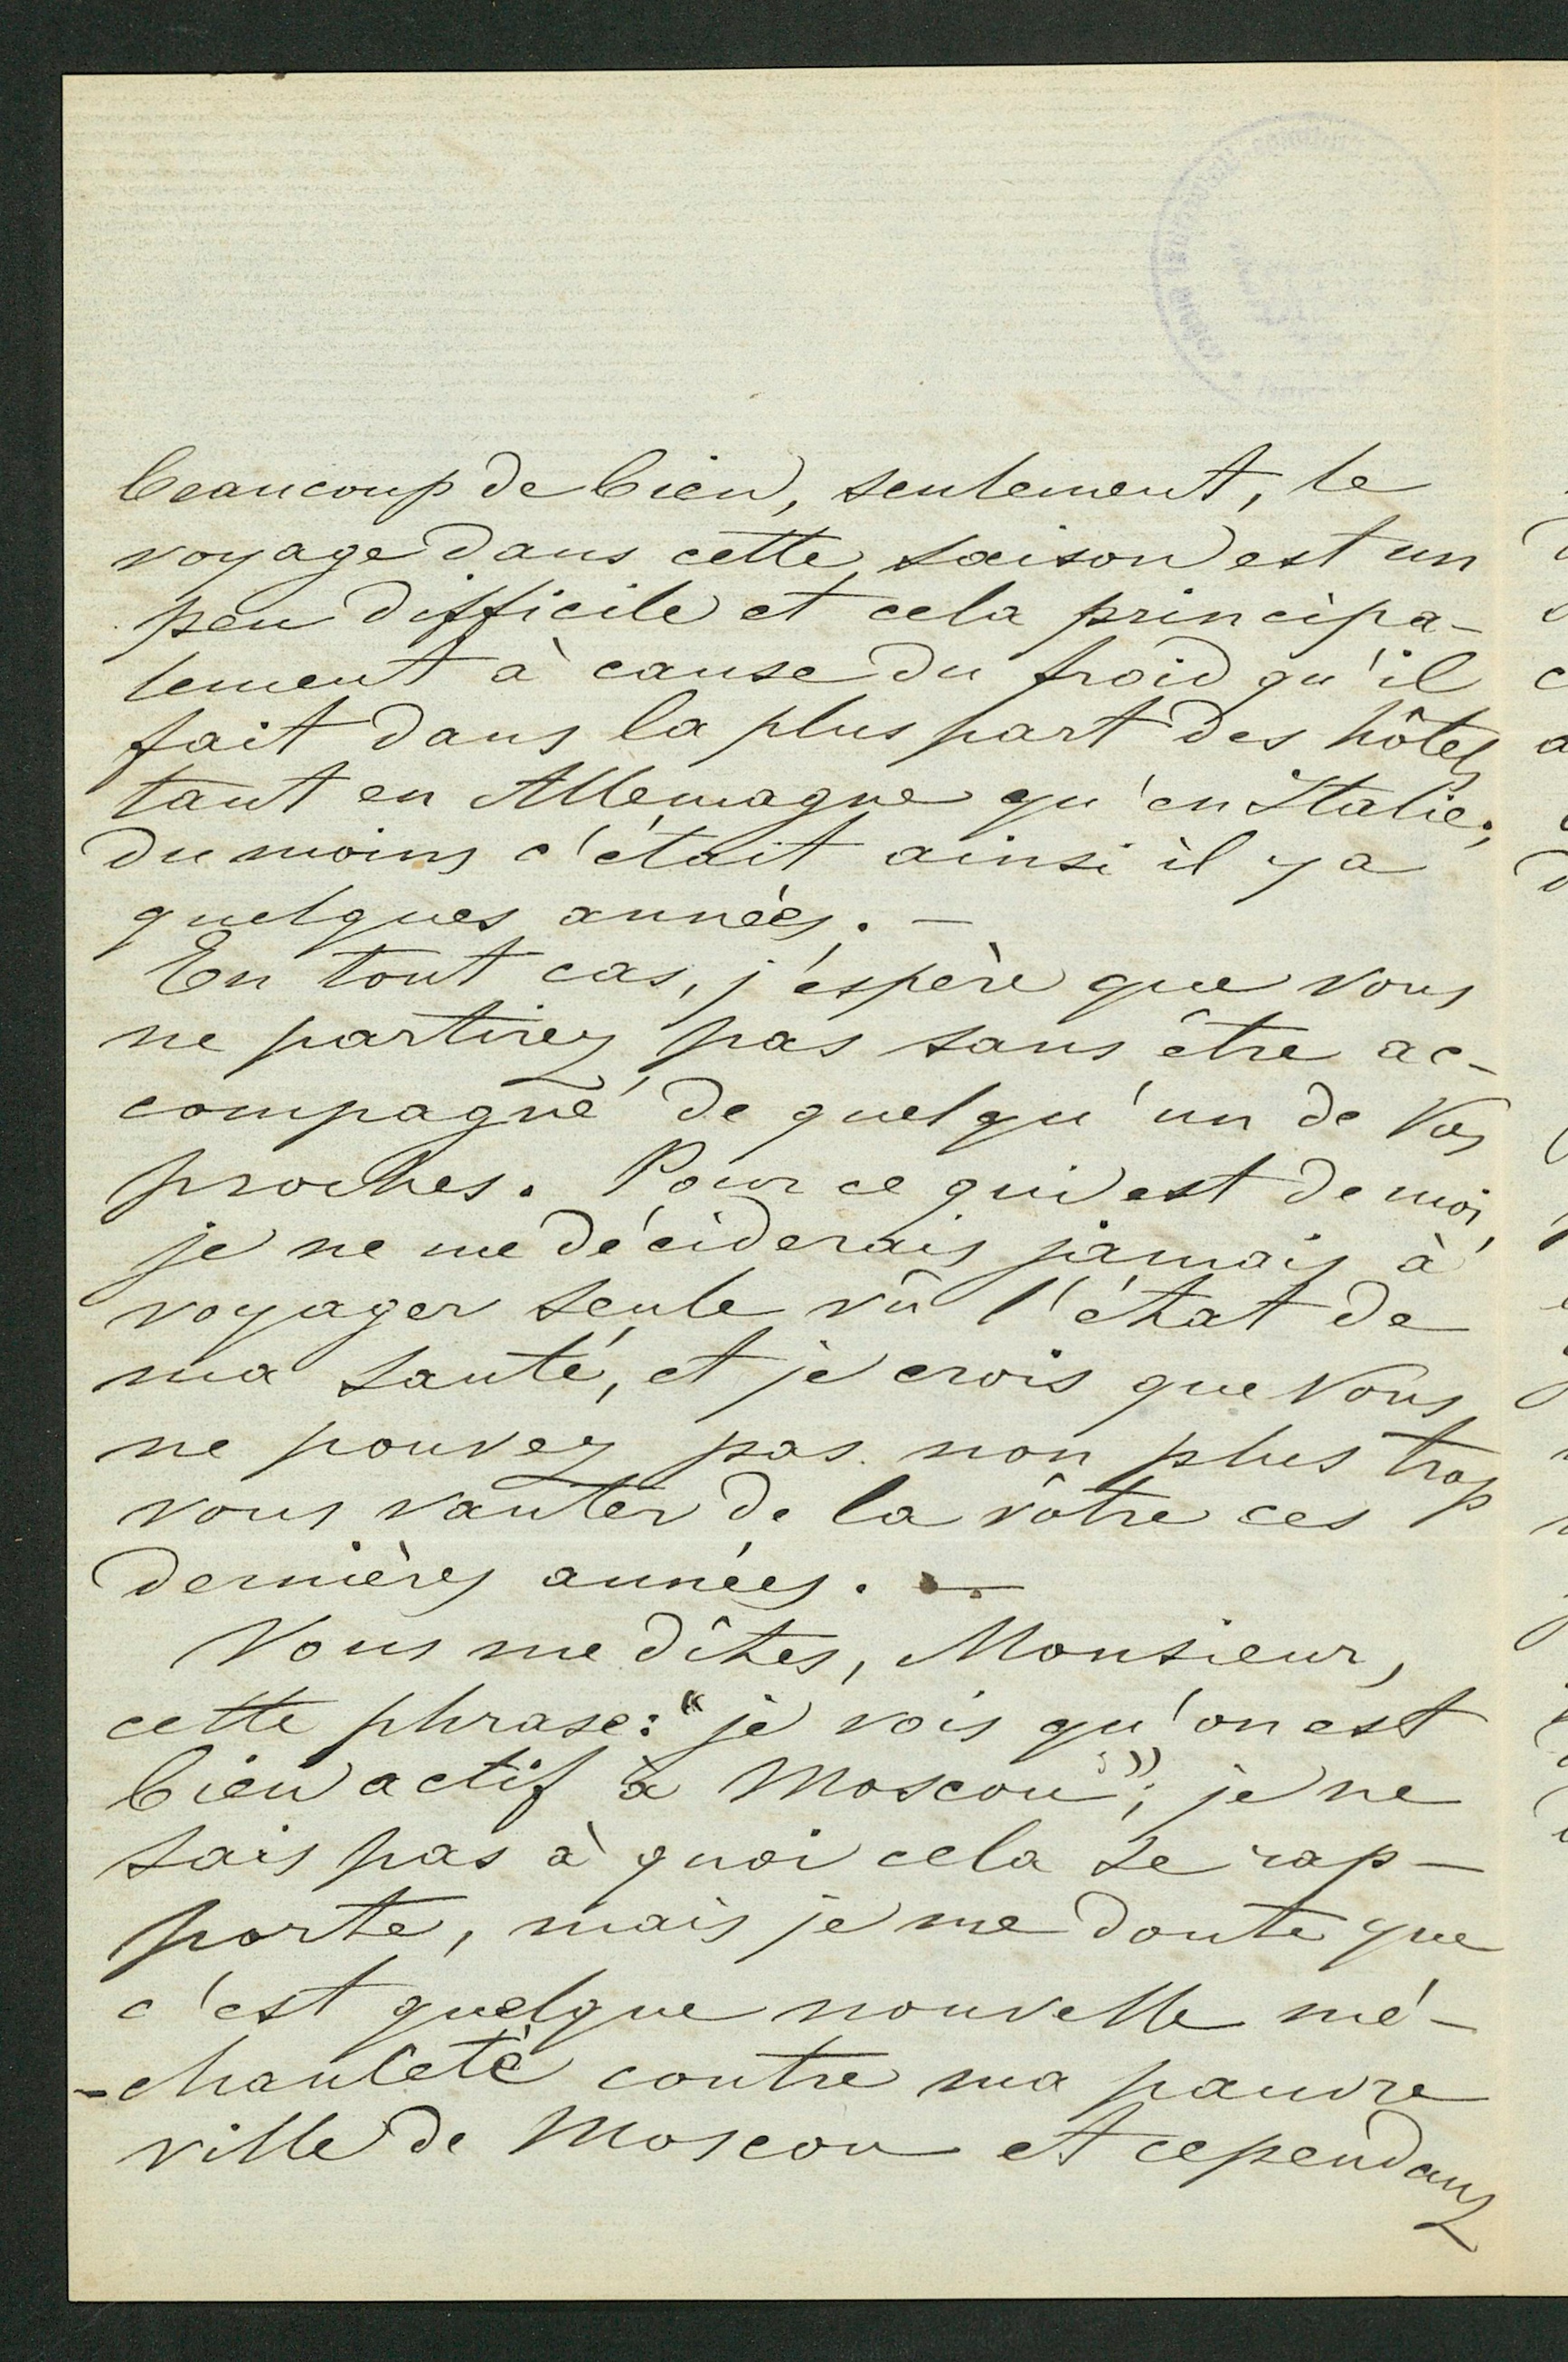 beaucoup de bien, seulement, le
voyage dans cette saison est un
peu difficile et cela principa-
lement à cause du froid qu'il
fait dans la plus part des hôtels
tant en Allemagne qu'en Italie;
du moins c'était ainsi il y a
quelques années. —
En tout cas, j'espère que vous
ne partirez pas sans être ac-
compagné de quelqu'un de Vos
proches. Pour ce qui est de moi,
je ne me déciderais jamais à
voyager seule vû l'état de
ma santé, et je crois que Vous
ne pouvez pas non plus trop
vous vanter de la vôtre ces
dernières années. —
Vous me dîtes, Monsieur,
cette phrase: "je vois qu'on est
bien actif à Moscou"; je ne
sais pas à quoi cela se rap-
porte, mais je me doute que
c'est quelque nouvelle mé-
-chanceté contre ma pauvre
ville de Moscou et cependant